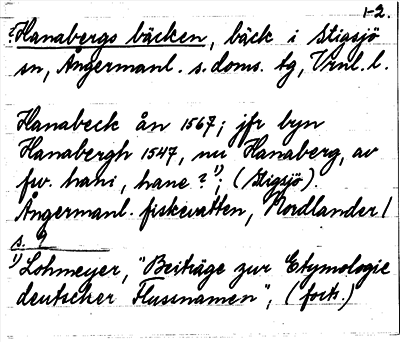 1-2.
?Hanabergs bäcken, bäck i Stigsjö
sn, Ångermanl. s. doms. tg, Vrnl. l.
Hanabeck ån 1567; jfr byn
Hanabergh 1547, nu Hanaberg, av
fv. hani, hane?¹⁾; (Stigsjö).
Ångermanl. fiskevatten, Nordlander 1
s. 9
¹⁾ Lohmeyer, "Beiträge zur Etymologie
deutscher Flussnamen", (forts.)